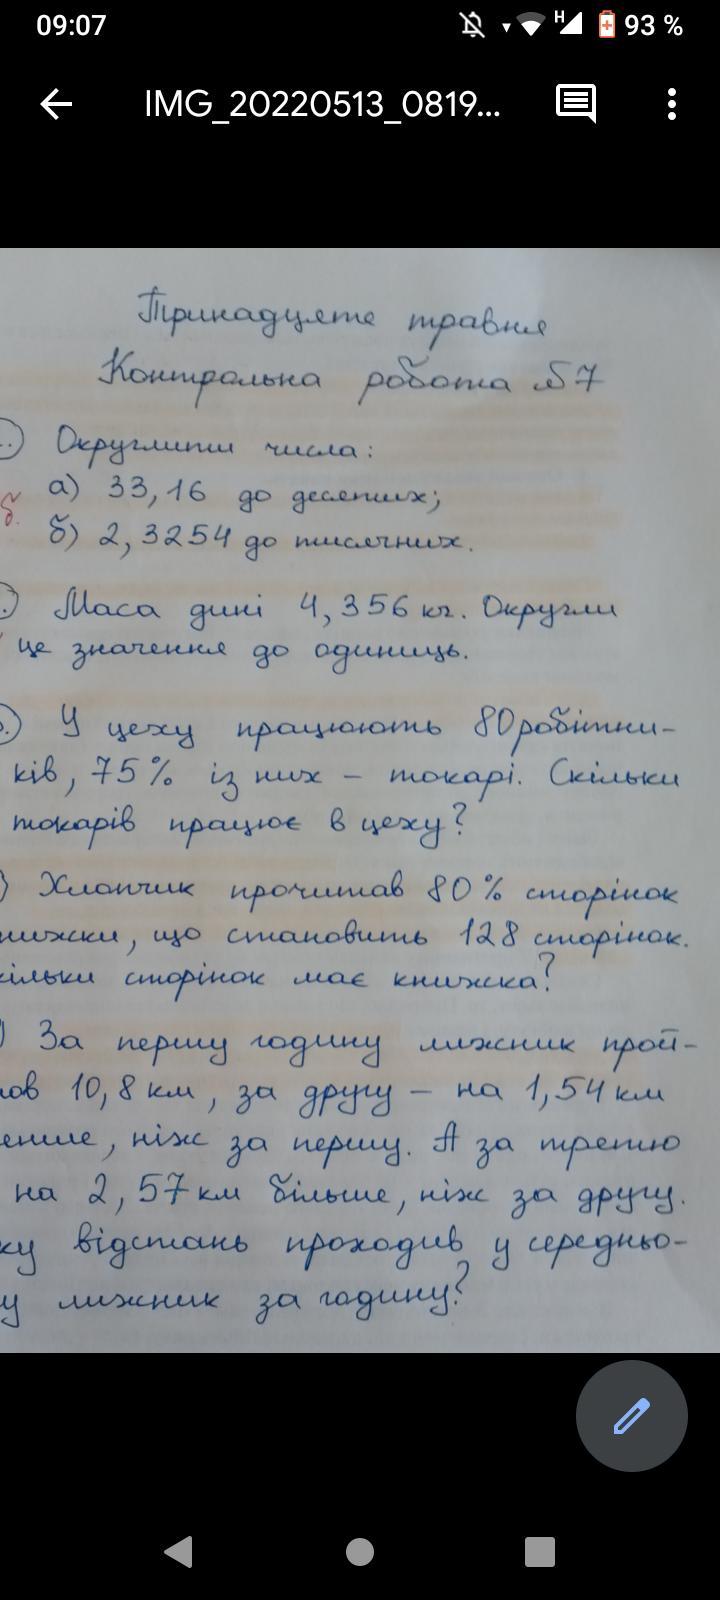 09:07
H 93 %
IMG_20220513_0819...
Тринадцяте травня
Контрольна робота №7
Округлити числа:
а) 33,16 до десятих;
б) 2,3254 до тисячних.
Маса дині 4,356 кг. Округли
це значення до одиниць.
У цеху працюють 80 робітни-
ків, 75% із них – токарі. Скільки
токарів працює в цеху?
Хлопчик прочитав 80% сторінок
нижки, що становить 128 сторінок.
кільки сторінок має книжка?
) За першу годину лижник прой-
ов 10,8 км, за другу – на 1,54 км
енше, ніж за першу. А за третю
на 2,57 км більше, ніж за другу.
ку відстань проходив у середньо-
у лижник за годину?